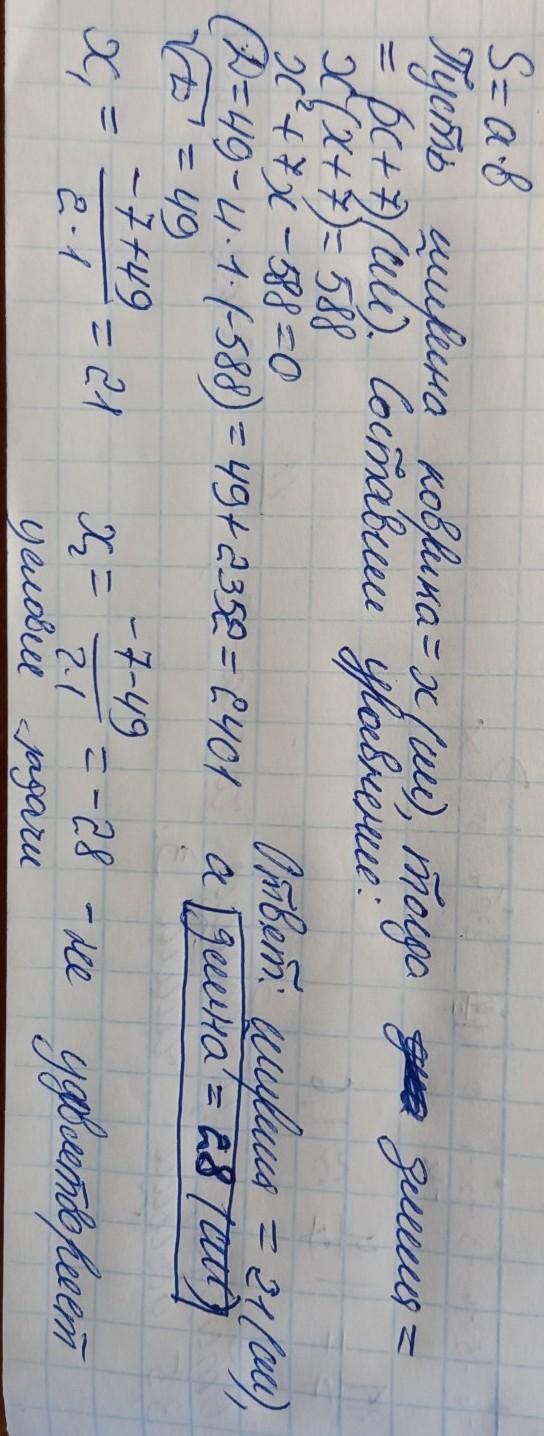 S = a·b
Пусть ширина коврика = x (см), тогда длина =
= (x + 7) (см). Составим уравнение:
x(x + 7) = 588
x² + 7x - 588 = 0
D = 49 - 4·1·(-588) = 49 + 2352 = 2401
√D = 49
x₁ = (-7+49)/(2·1) = 21 x₂ = (-7-49)/(2·1) = -28 - не удовлетворяет
условие задачи
Ответ: ширина = 21 (см),
а длина = 28 (см)